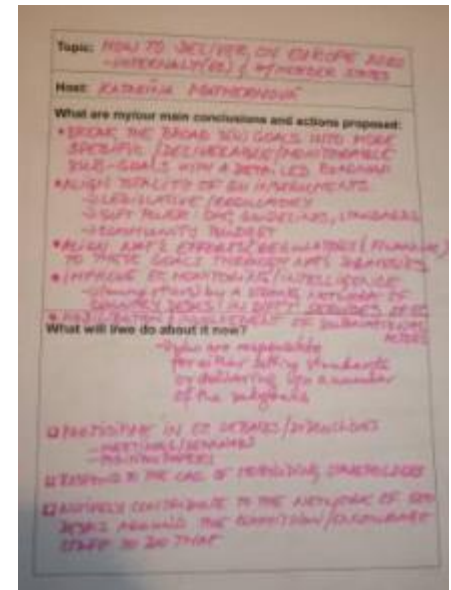 Topic: HOW TO DELIVER ON EUROPE 2020
- INTERNALLY (EC) / W/MEMBER STATES
Host: KATARÍNA MATHERNOVÁ
What are my/our main conclusions and actions proposed:
• BREAK THE BROAD GOALS INTO MORE
SPECIFIC / DELIVERABLE / MONITORABLE
SUB-GOALS WITH A DETAILED ROADMAP
• ALIGN TOTALITY OF EU INSTRUMENTS
LEGISLATIVE / REGULATORY
SOFT POWER: GUIDELINES, STANDARDS
COMMUNITY BUDGET
• ALIGN EFFORTS
TO THESE GOALS THROUGH
• IMPROVE EC MONITORING / INTELLIGENCE
BY A STRONG NETWORK OF
COUNTRY DESKS IN SERVICES OF EC
OF SUBNATIONAL
What will I/we do about it now?
who are responsible
for either setting standards
or delivering upon a number
of the subgoals
PARTICIPATE IN EC DEBATES / DISCUSSIONS
- MEETINGS / SEMINARS
- POSITION PAPERS
RESPOND TO THE CALL OF STAKEHOLDERS
ACTIVELY CONTRIBUTE TO THE NETWORK OF
DESKS AROUND THE COMMISSION / ENCOURAGE
STAFF TO DO THAT